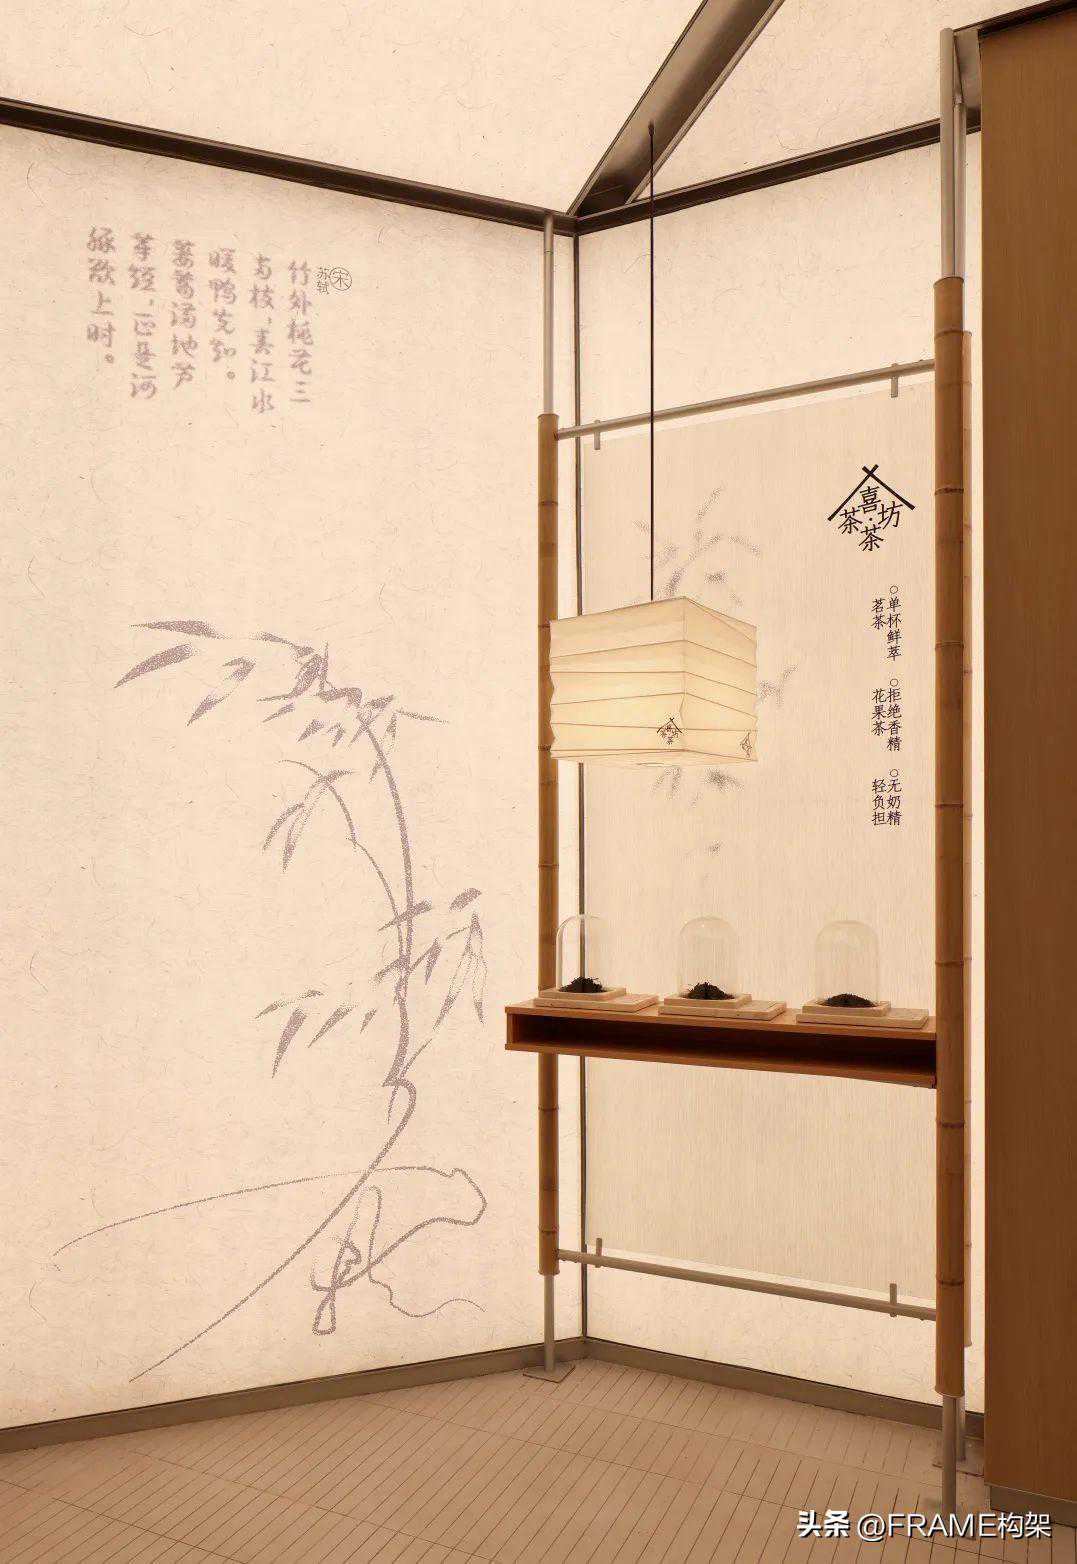 宋
苏轼
竹外桃花三
两枝，春江水
暖鸭先知。
蒌蒿满地芦
芽短，正是河
豚欲上时。
喜茶·茶坊
○单杯鲜萃
茗茶
○拒绝香精
花果茶
○无奶精
轻负担
头条 @FRAME构架